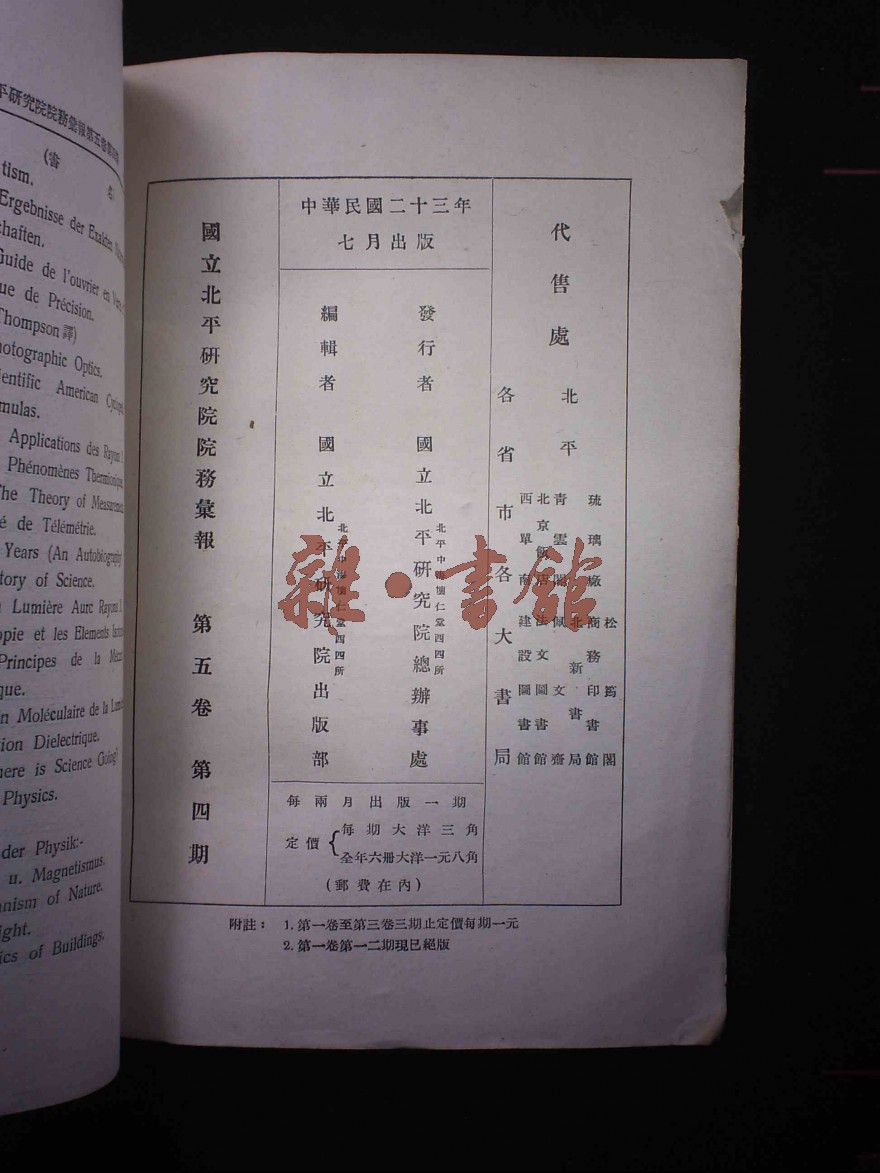 平研究院院務彙報第五卷第
(書名
tism.
Ergebnisse der Exakten
chaften.
Guide de l'ouvrier en
ue de Précision.
Thompson 譯)
hotographic Optics.
ientific American Cyclope
mulas.
Applications des Rayons
Phénomènes Thermioniques
The Theory of Measurement
é de Télémétrie.
Years (An Autobiography)
tory of Science.
Lumière
opie et les Elements
Principes de la
que.
n Moléculaire de la
tion Dielectrique.
here is Science Going?
Physics.
der Physik:-
u. Magnetismus.
anism of Nature.
ight.
ics of Buildings.
代售處
北平
琉璃廠
松筠閣
商務印書館
北新書局
青雲閣
佩文齋
北京飯店
法文圖書館
西單商
建設圖書館
各省市各大書局
中華民國二十三年
七月出版
發行者 國立北平研究院總辦事處
北平中海懷仁堂西四所
編輯者 國立北平研究院出版部
北平中海懷仁堂西四所
每兩月出版一期
定價{
每期大洋三角
全年六冊大洋一元八角
(郵費在內)
國立北平研究院院務彙報 第五卷 第四期
附註： 1. 第一卷至第三卷三期止定價每期一元
2. 第一卷第一二期現已絕版
雜·書館